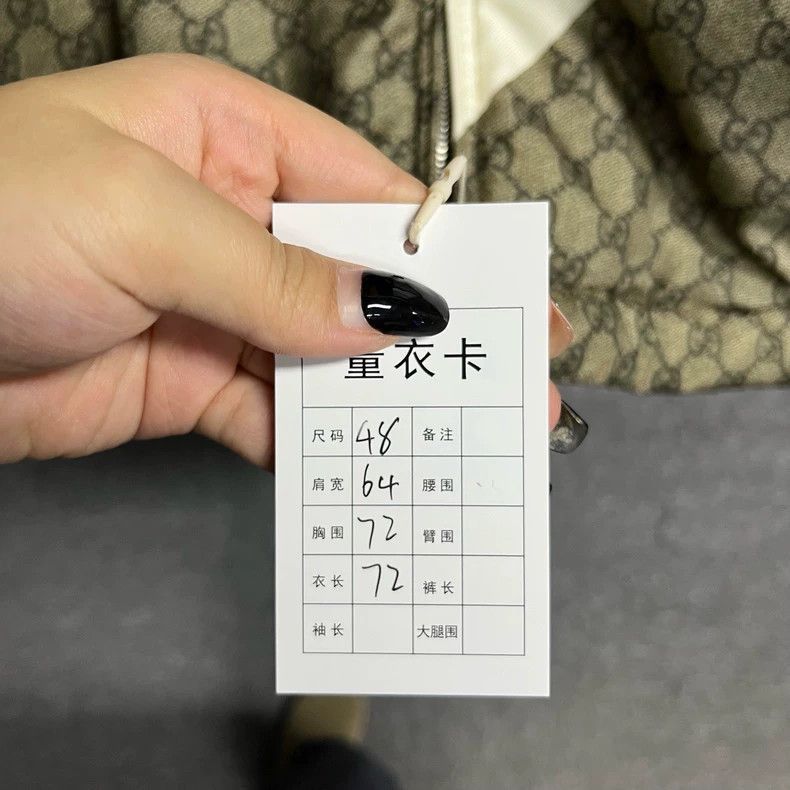 量衣卡
尺码 48 备注
肩宽 64 腰围
胸围 72 臂围
衣长 72 裤长
袖长 大腿围